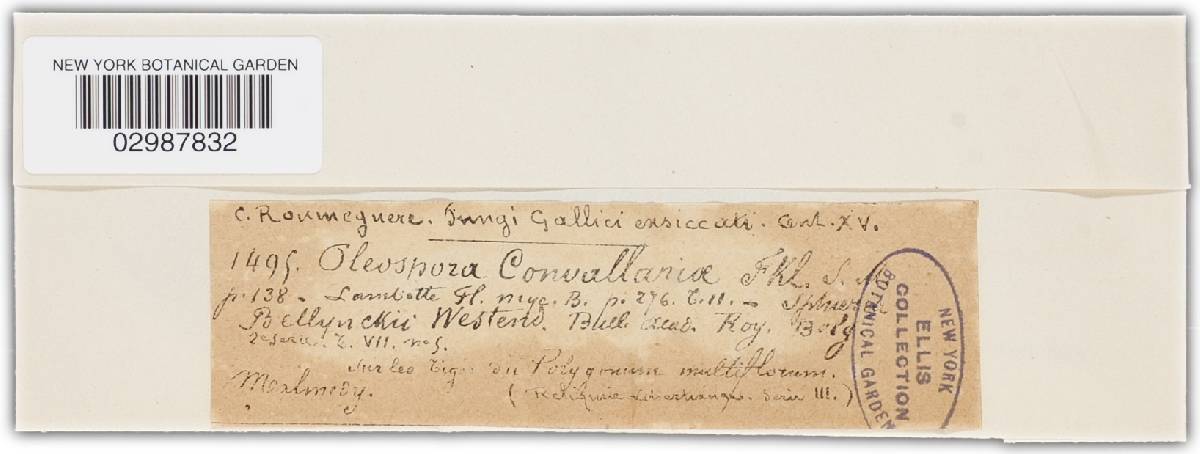 NEW YORK BOTANICAL GARDEN
02987832
C. Roumeguere. Fungi Gallici exsiccati. Cent. XV.
1495. Pleospora Convallariæ Fkl. S. M
p. 138 - Lambotte Fl. myc. B. p. 276. T. II. - Sphaeria
Bellynckii Westend. Bull. Acad. Roy. Belg
2e serie. T. VII. no 5.
Sur les tiges du Polygonum multiflorum.
Malmedy. (Reliquiæ Libertianæ. Serie III.)
NEW YORK
ELLIS
COLLECTION
BOTANICAL GARDEN